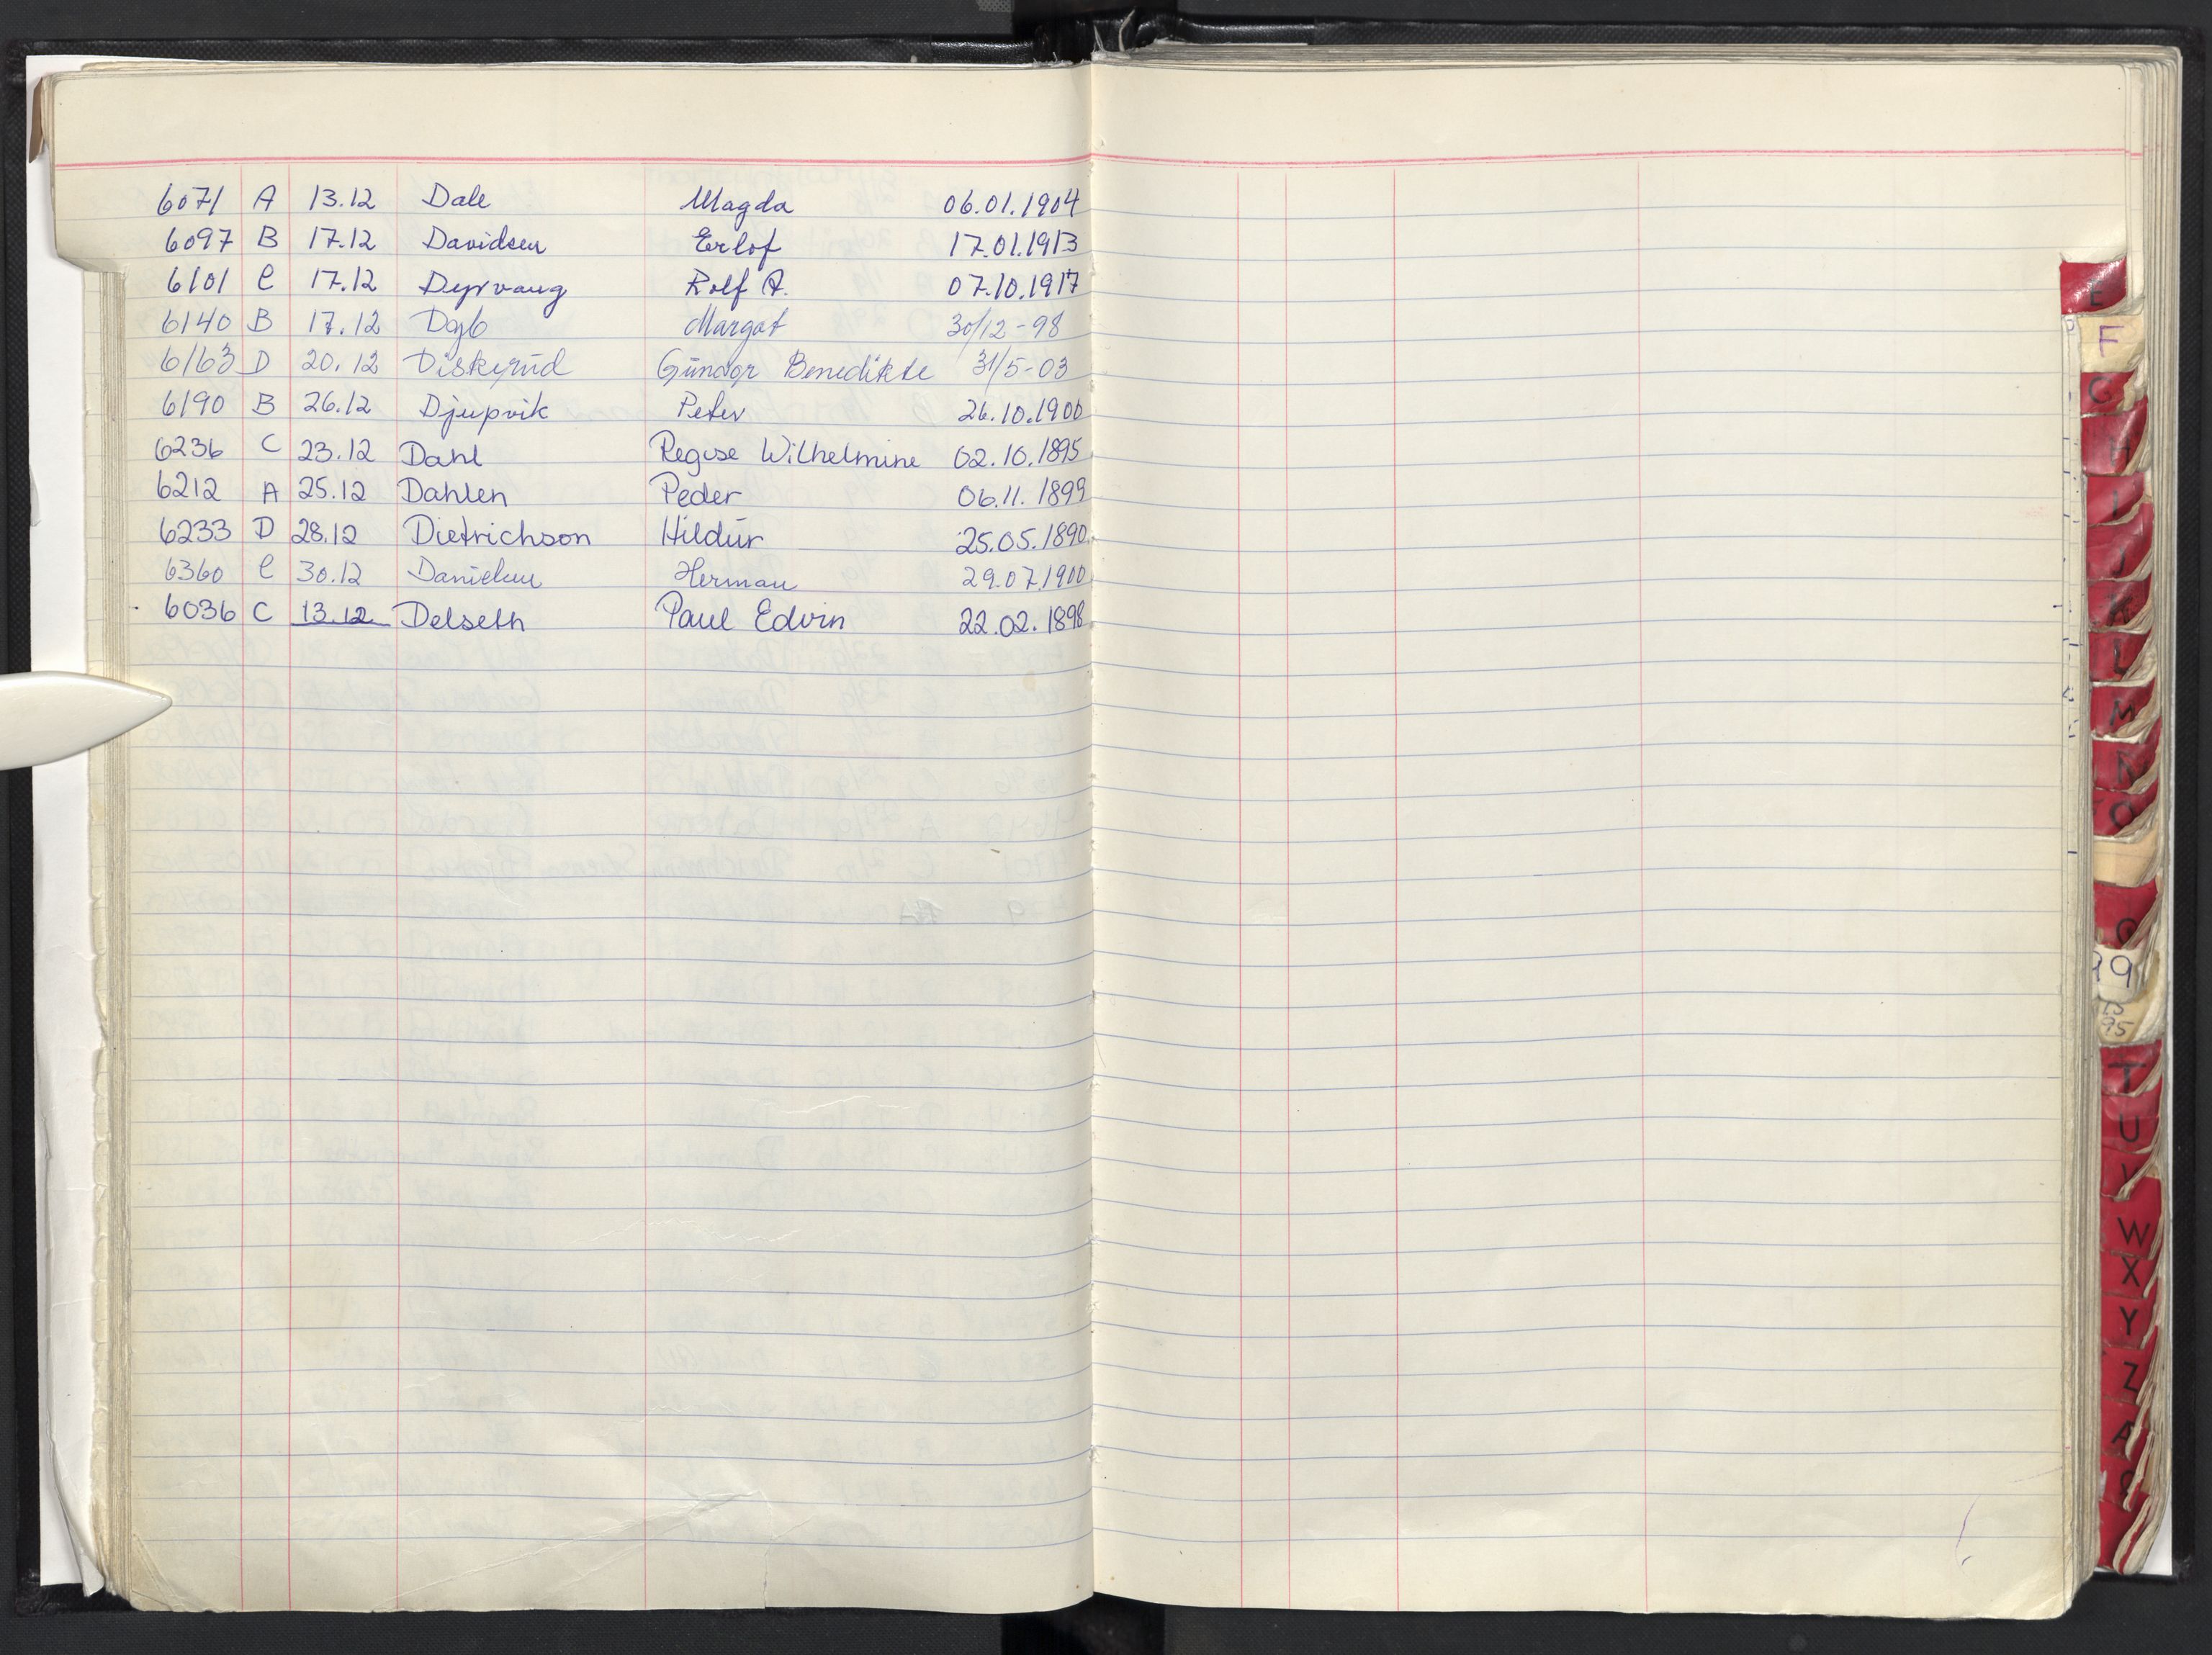 6071 A 13.12 Dale Magda 06.01.1904
6097 B 17.12 Davidsen Erlof 17.01.1913
6101 C 17.12 Dyrvang Rolf A. 07.10.1917
6140 B 17.12 Margot 30/12-98
6163 D 20.12 Diskerud Gunvor Benedikte 31/5-03
6190 B 26.12 Djupvik Peter 26.10.1900
6236 C 23.12 Dahl Regise Wilhelmine 02.10.1895
6212 A 25.12 Dahlen Peder 06.11.1899
6233 D 28.12 Dietrichson Hildur 25.05.1890
6360 C 30.12 Danielsen Herman 29.07.1900
6036 C 13.12 Delseth Paul Edvin 22.02.1898
E
F
G
H
I
J
K
L
M
N
O
Q
T
U
V
W
X
Y
Z